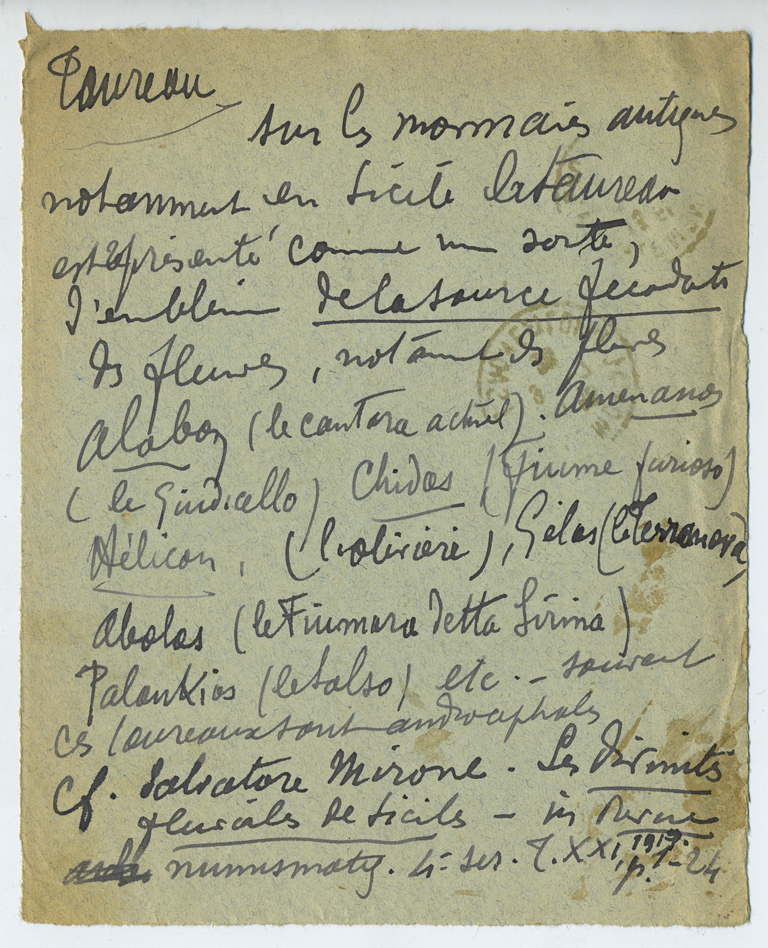 Taureau
sur les monnaies antiques
notamment en Sicile le taureau
est représenté comme un sorte,
d'emblème de la source fécondate
des fleuves, notamt des fleuves
Alabon (le cantara actuel). Amenanos
(le Giudicello) Chidas (Fiume furioso)
Hélicon, (l'oliviere), Gelas (le Terranova)
Abolas (le Fiumara detta Sirina)
Palankios (le Salso) etc. – souvent
ces taureaux sont androcéphales
Cf. Salvatore Mirone. Les Divinités
fluviales de Sicile – in Revue
numismatq. 4e ser. T. XXI, 1917. p. 1-24